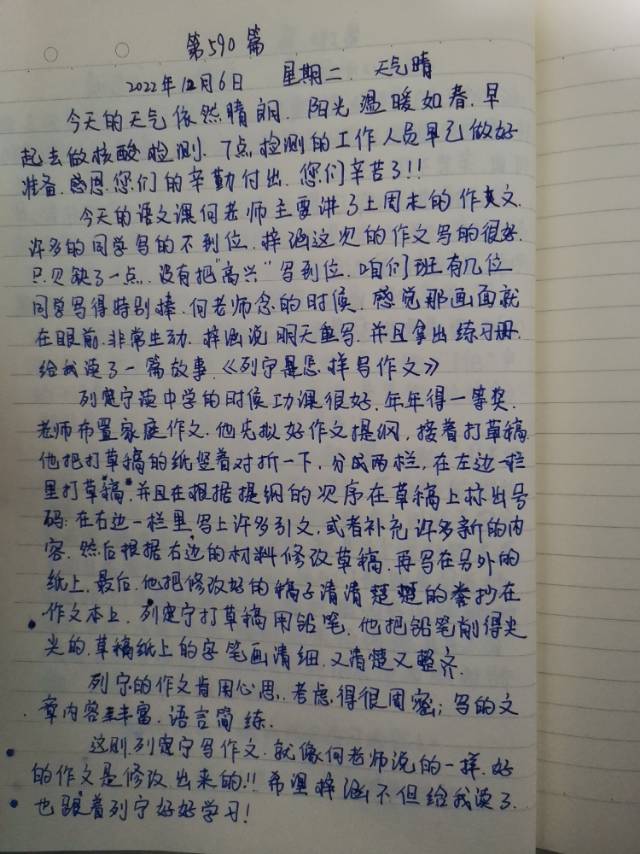 第590篇
2022年12月6日 星期二 天气晴
今天的天气依然晴朗.阳光温暖如春.早
起去做核酸检测.7点检测的工作人员早已做好
准备.感恩.您们的辛勤付出.您们辛苦了!!
今天的语文课何老师主要讲了上周末的作文.
许多的同学写的不到位.梓涵这次的作文写的很好.
只见缺了一点.没有把"高兴"写到位.咱们班有几位
同学写得特别棒.何老师念的时候.感觉那画面就
在眼前.非常生动.梓涵说明天重写.并且拿出练习册.
给我读了一篇故事.《列宁是怎样写作文》
列宁读中学的时候功课很好.年年得一等奖.
老师布置家庭作文.他先拟好作文提纲,接着打草稿.
他把打草稿的纸竖着对折一下,分成两栏,在左边一栏
里打草稿.并且在根据提纲的次序在草稿上标出号
码:在右边一栏里写上许多引文,或者补充许多新的内
容.然后根据右边的材料修改草稿.再写在另外的
纸上.最后.他把修改好的稿子清清楚楚的誊抄在
作文本上.列宁打草稿用铅笔.他把铅笔削得尖
尖的.草稿纸上的字笔画清细.又清楚又整齐.
列宁的作文肯用心思.考虑得很周密;写的文
章内容丰富.语言简练.
这则.列宁写作文.就像何老师说的一样.好
的作文是修改出来的!!希望梓涵不但给我读了.
也跟着列宁好好学习!